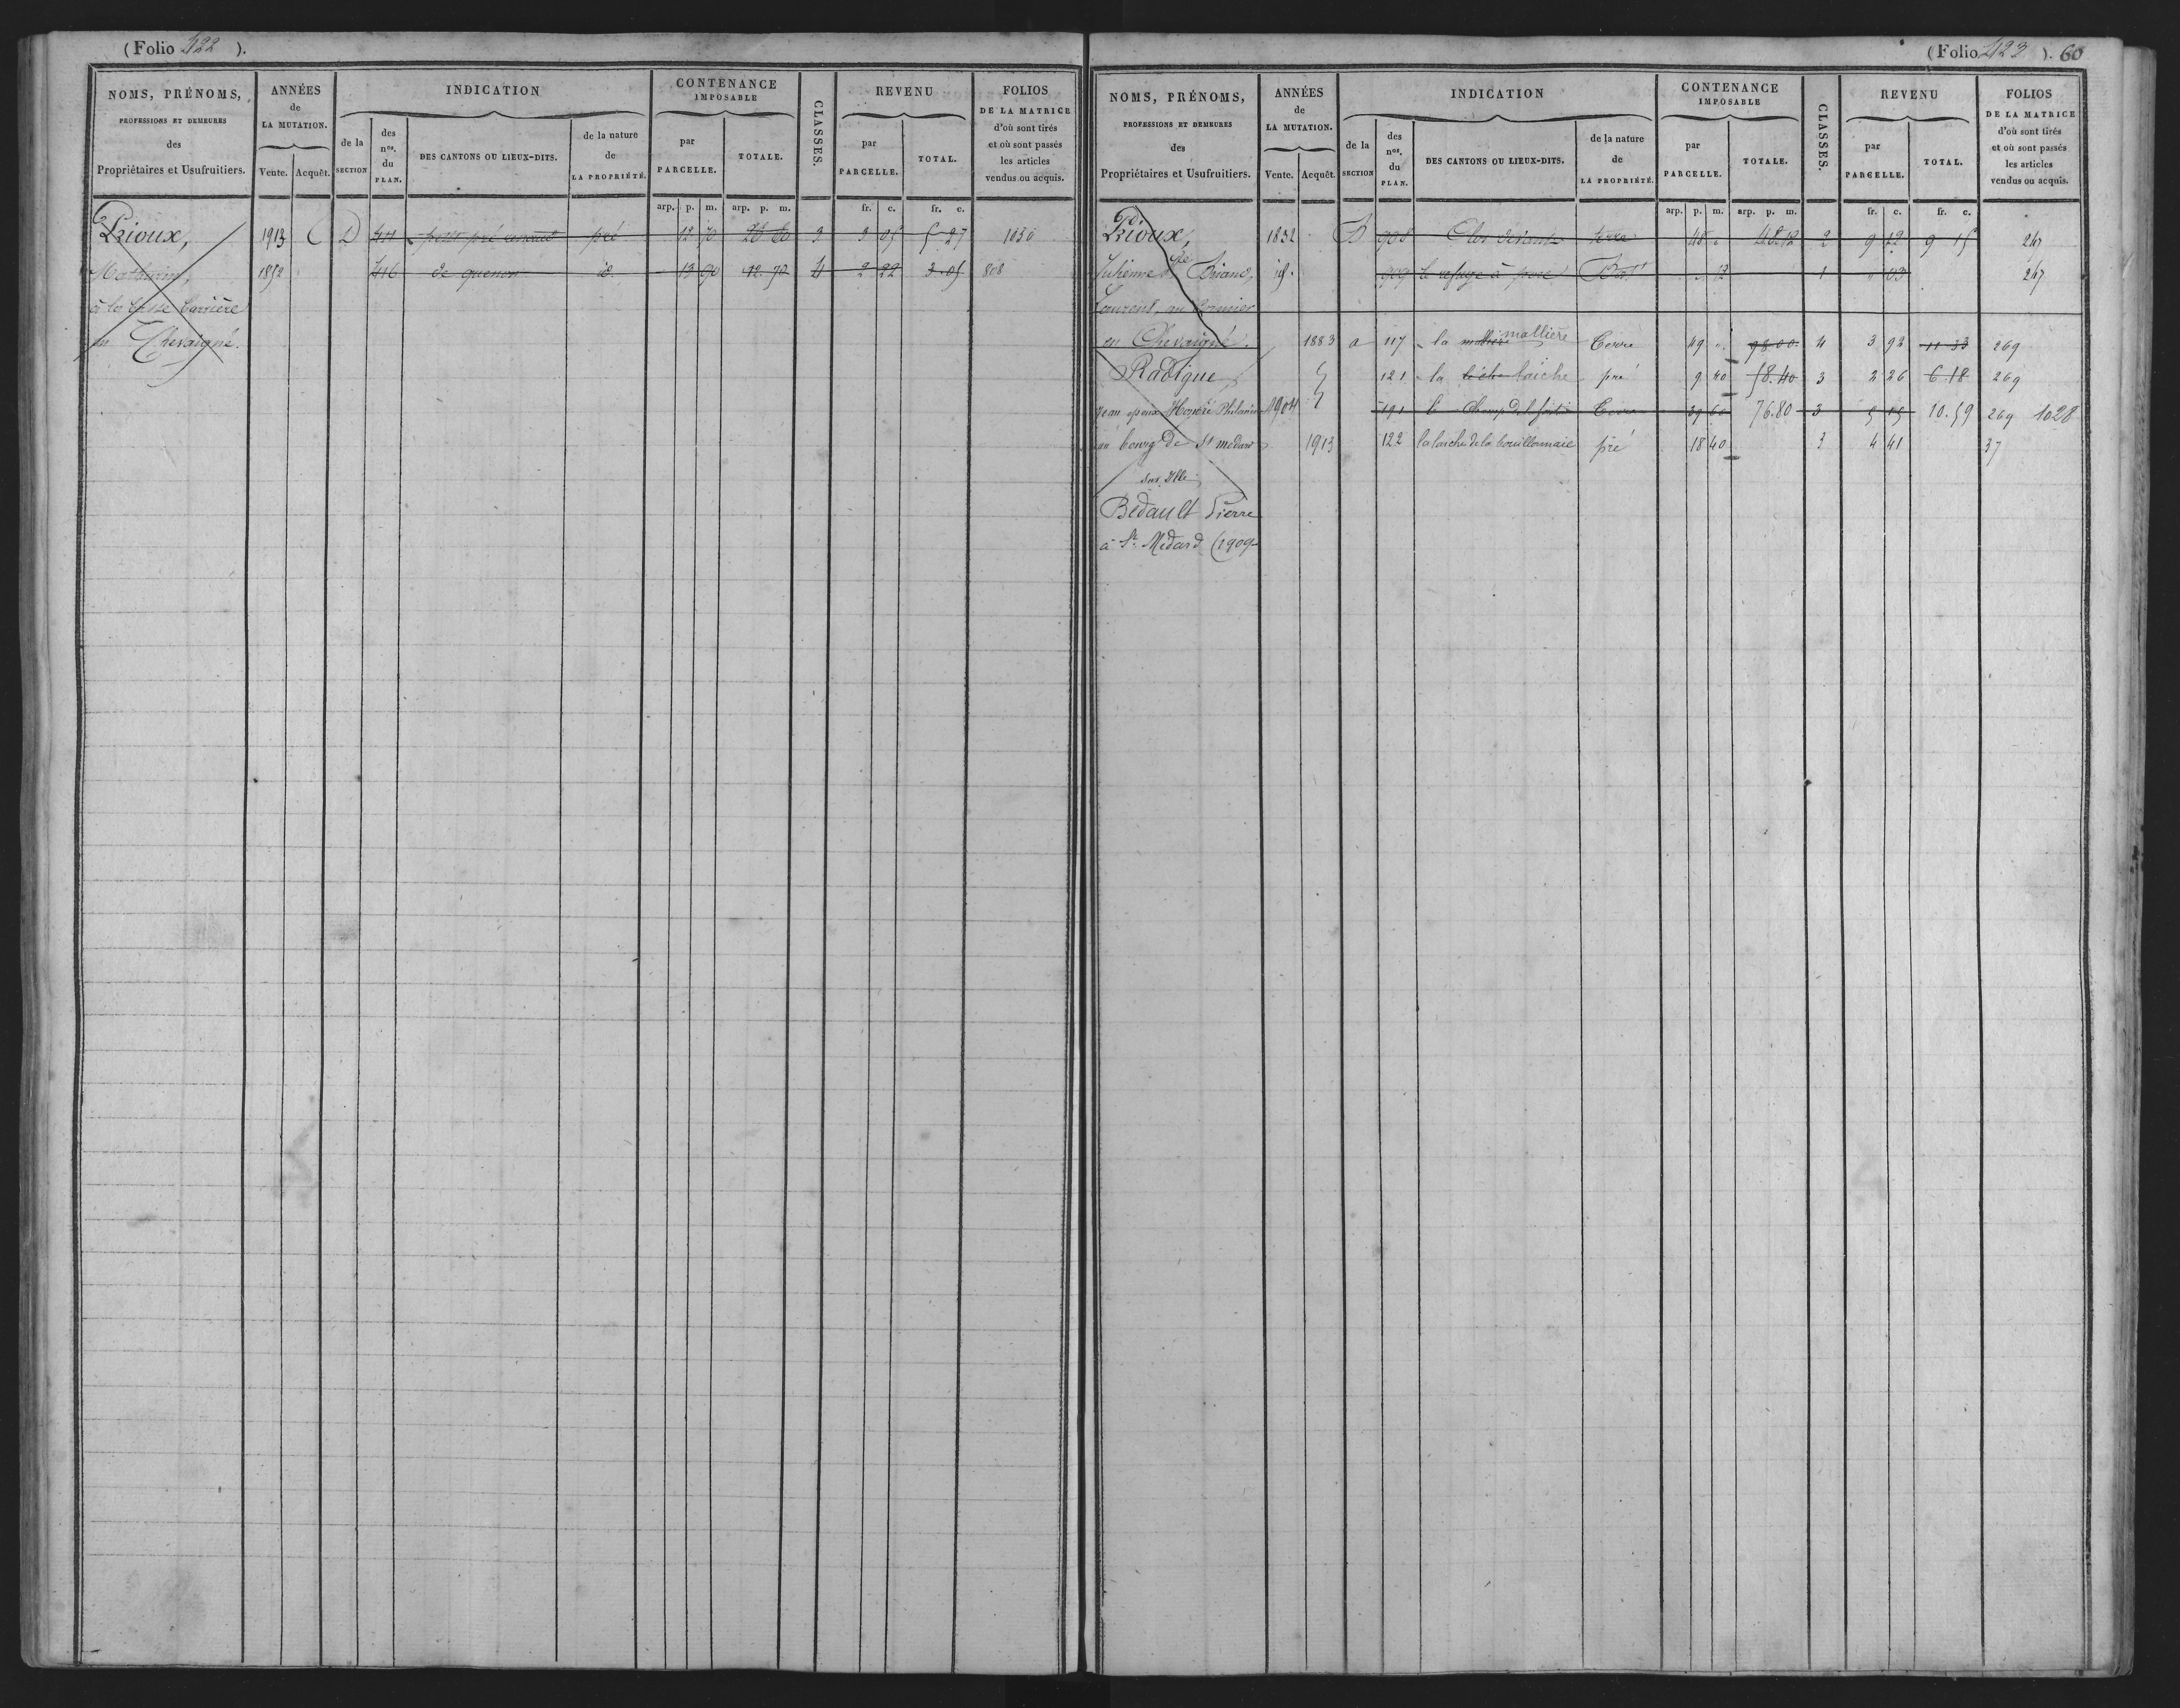 (Folio 422 ).
NOMS, PRÉNOMS,
PROFESSIONS ET DEMEURES
des
Propriétaires et Usufruitiers.
ANNÉES
de
LA MUTATION.
Vente. Acquêt.
INDICATION
de la
SECTION
des
nos.
du
PLAN.
DES CANTONS OU LIEUX-DITS.
de la nature
de
LA PROPRIÉTÉ.
CONTENANCE
IMPOSABLE
par
PARCELLE.
TOTALE.
CLASSES.
REVENU
par
PARCELLE.
TOTAL.
FOLIOS
DE LA MATRICE
d'où sont tirés
et où sont passés
les articles
vendus ou acquis.
arp. p. m. arp. p. m. fr. c. fr. c.
Prioux, 1913 D pré 12 70 26 60 3 3 05 5 27 1030
Mathurin, 1852 416 de quenon id. 13 90 12.70 4 2 22 3.05 808
à la basse barrière
en Chevaigné.
(Folio 423 ). 60
NOMS, PRÉNOMS,
PROFESSIONS ET DEMEURES
des
Propriétaires et Usufruitiers.
ANNÉES
de
LA MUTATION.
Vente. Acquêt.
INDICATION
de la
SECTION
des
nos.
du
PLAN.
DES CANTONS OU LIEUX-DITS.
de la nature
de
LA PROPRIÉTÉ.
CONTENANCE
IMPOSABLE
par
PARCELLE.
TOTALE.
CLASSES.
REVENU
par
PARCELLE.
TOTAL.
FOLIOS
DE LA MATRICE
d'où sont tirés
et où sont passés
les articles
vendus ou acquis.
arp. p. m. arp. p. m. fr. c. fr. c.
Prioux, 1832 B 908 Clos terre 48 " 48.12 2 9 12 9 15 247
Julienne Briand, id. 909 le refuge à porc Bat. " 12 1 " 03 247
Laurent, au
en Chevaigné. 1883 a 117 la mallière Terre 49 " 98.00 4 3 92 11 33 269
Radigue, 121 la laiche pré 9 40 58.40 3 2 26 6 18 269
Jean époux Honoré 1904 191 le Champ Terre 39 60 76.80 3 5 15 10.59 269 1028
au bourg de St médard 1913 122 la laiche de la bouillonnaie pré 18 40 3 4 41 37
sur Ille
Bedault Pierre
à St. Médard (1909